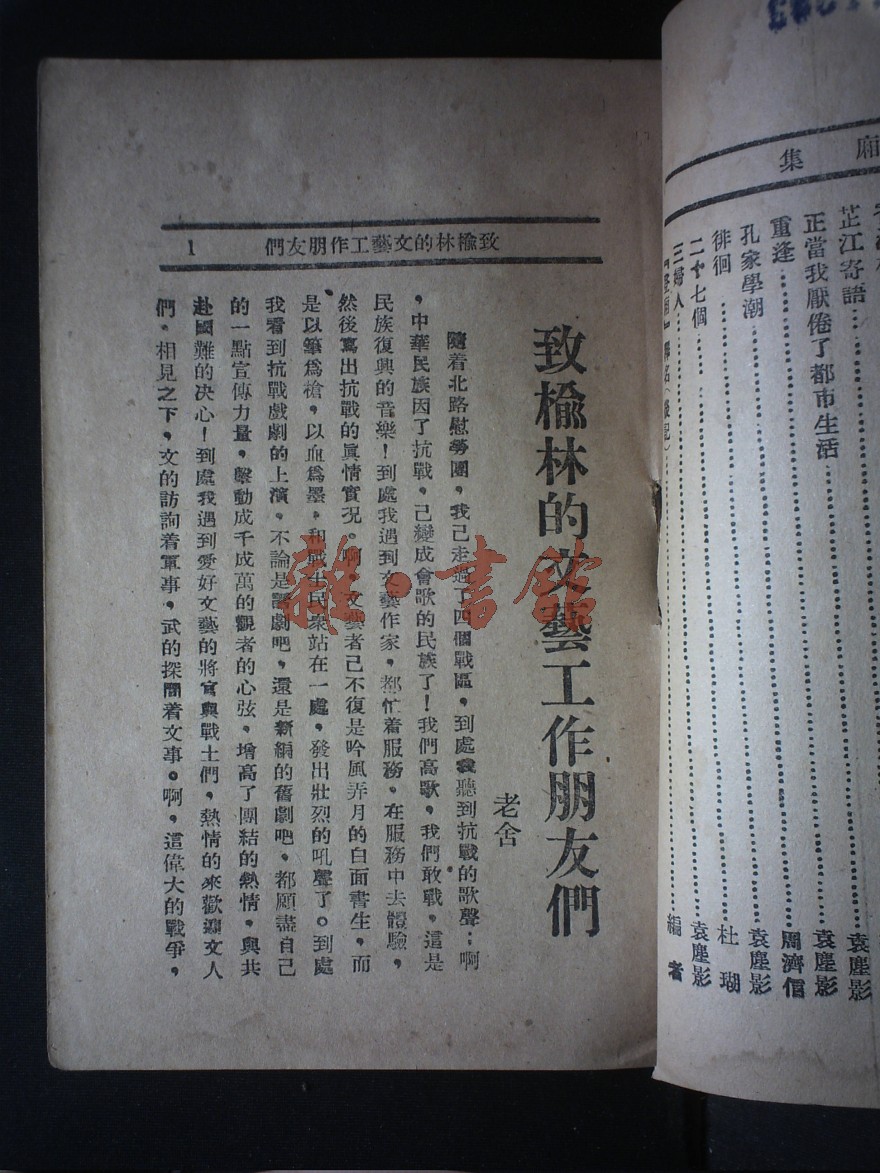 集 廂
芷江寄語
袁塵影
正當我厭倦了都市生活
袁塵影
重逢
周濟信
孔家學潮
袁塵影
徘徊
杜瑚
二十七個
袁塵影
三婦人
編者
1 致楡林的文藝工作朋友們
致楡林的文藝工作朋友們
老舍
隨着北路慰勞團，我已走過了四個戰區，到處我聽到抗戰的歌聲：啊
，中華民族因了抗戰，已變成會歌的民族了！我們高歌，我們敢戰，這是
民族復興的音樂！到處我遇到文藝作家，都忙着服務，在服務中去體驗，
然後寫出抗戰的眞情實况。啊，文藝者已不復是吟風弄月的白面書生，而
是以筆爲槍，以血爲墨，和戰士民衆站在一處，發出壯烈的吼聲了。到處
我看到抗戰戲劇的上演，不論是話劇吧，還是新編的舊劇吧，都願盡自己
的一點宣傳力量，擊動成千成萬的觀者的心弦，增高了團結的熱情，與共
赴國難的决心！到處我遇到愛好文藝的將官與戰士們，熱情的來歡迎文人
們，相見之下，文的訪詢着軍事，武的探問着文事。啊，這偉大的戰爭，
雜·書館